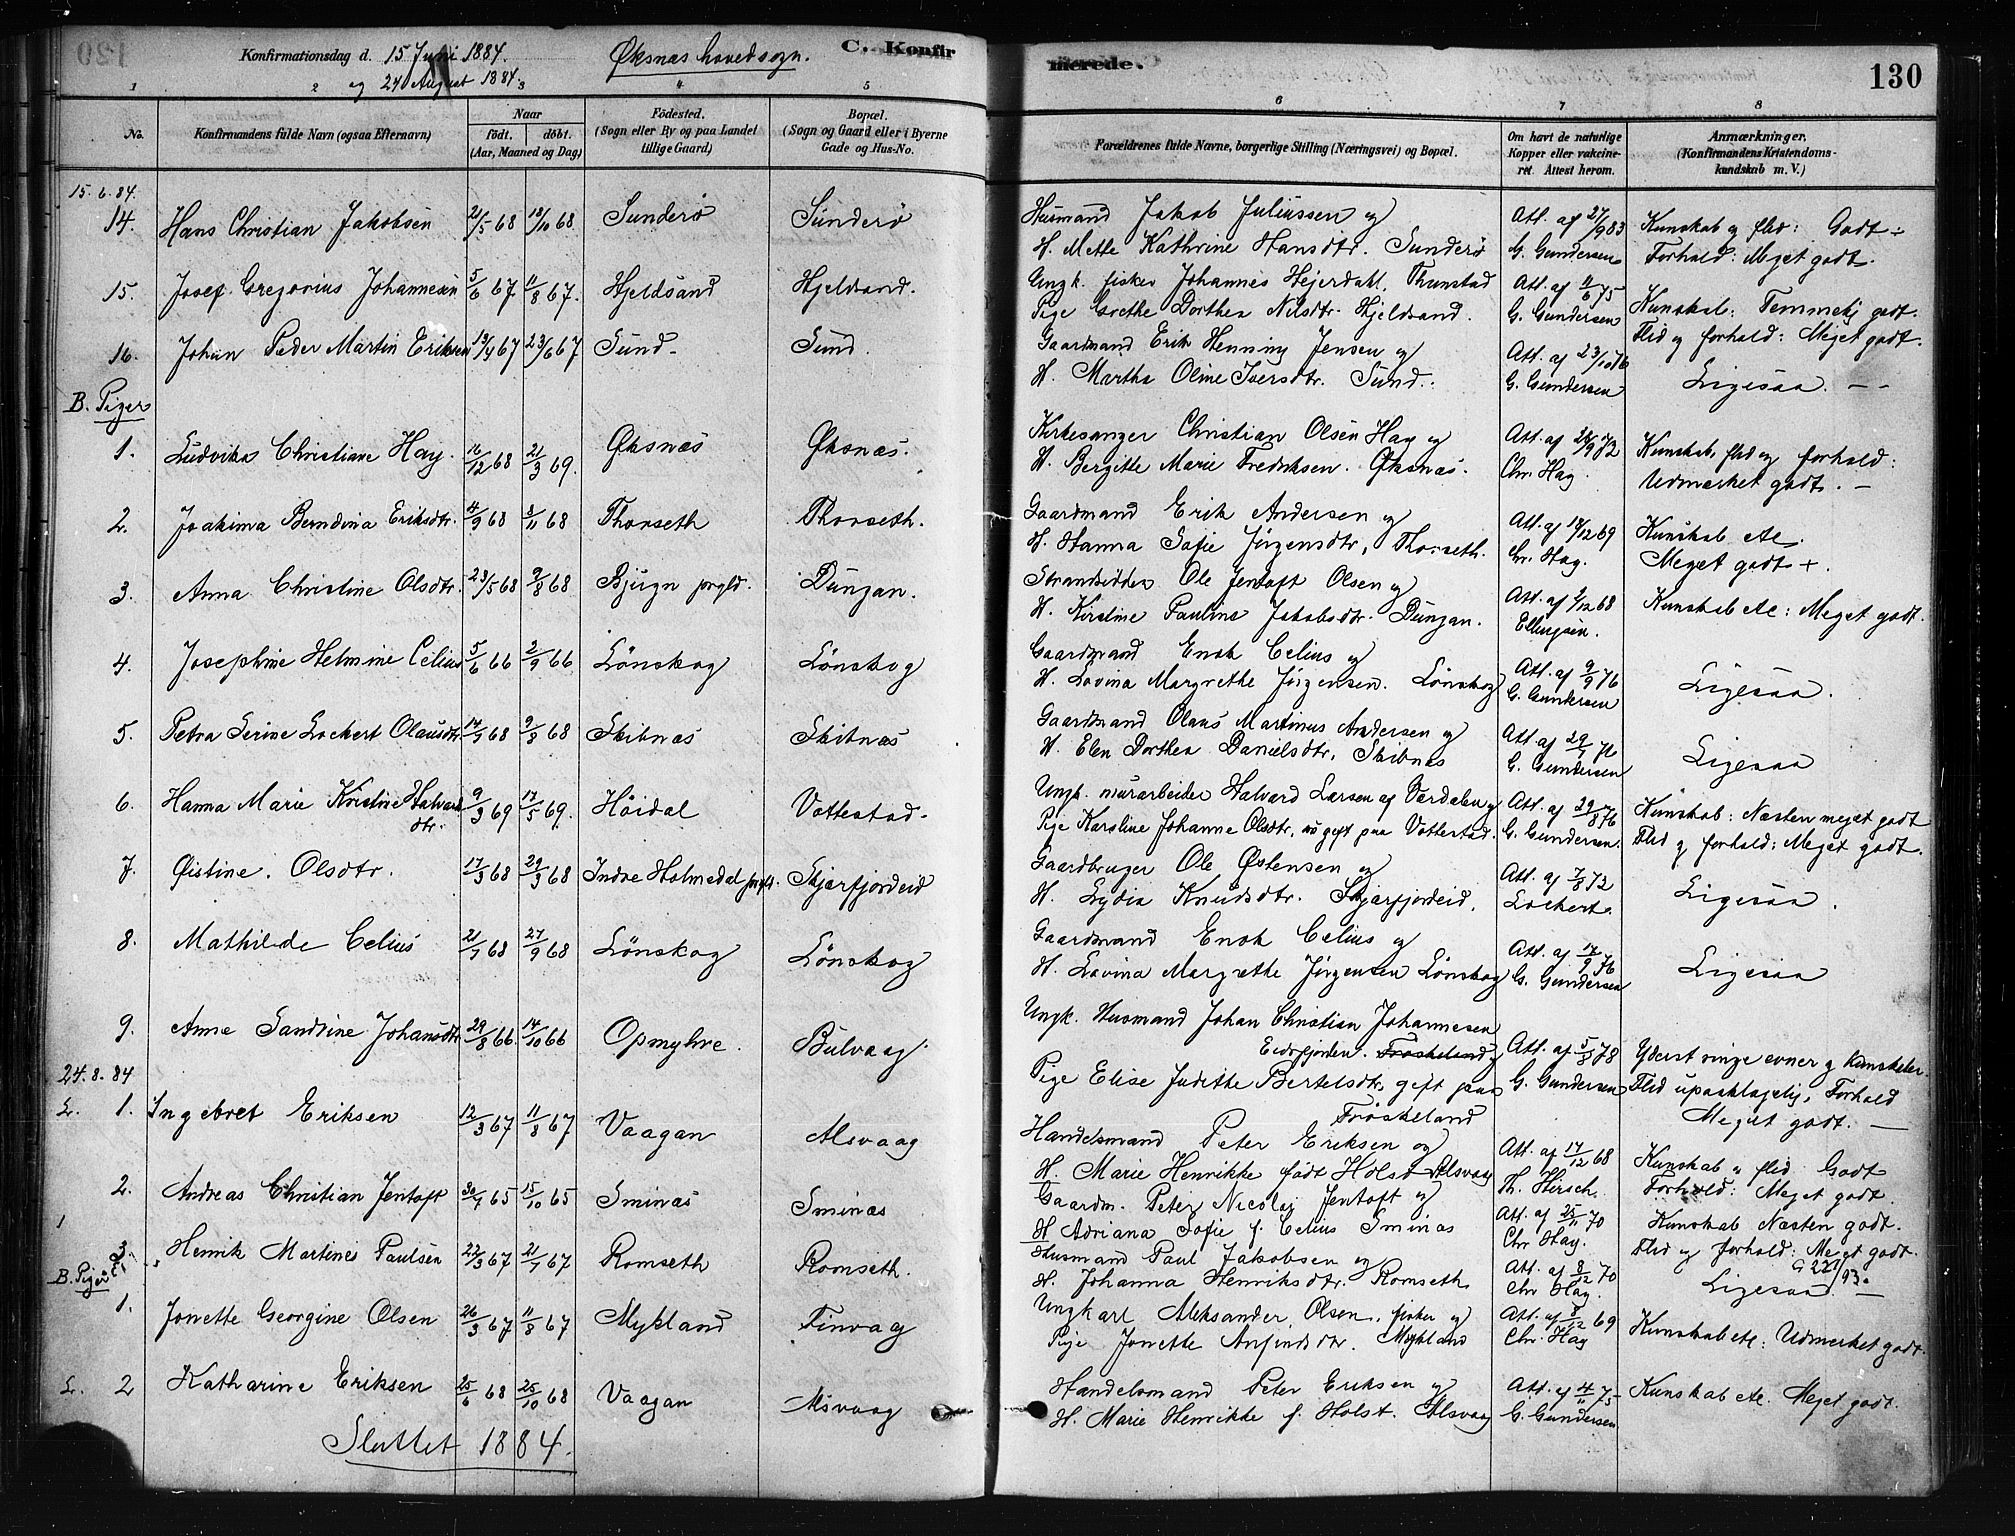 Konfirmationsdag d. 15 Juni 1884.
og 24 August 1884.
Øksnæs hovedsogn.
C. Konfirmerede.
130
1 2 3 4 5 6 7 8
No.
Konfirmandens fulde Navn (ogsaa Efternavn)
Naar
født. døbt.
(Aar, Maaned og Dag)
Fødested.
(Sogn eller By og paa Landet
tillige Gaard)
Bopæl.
(Sogn og Gaard eller i Byerne
Gade og Hus-No.
Forældrenes fulde Navne, borgerlige Stilling (Næringsvei) og Bopæl.
Om havt de naturlige
Kopper eller vakcine-
ret. Attest herom.
Anmærkninger.
(Konfirmandens Kristendoms-
kundskab m. V.)
15.6.84.
14. Hans Christian Jakobsen 21/5 68 18/10 68 Sunderö Sunderö
Husmand Jakob Juliussen og
H. Mette Kathrine Hansdtr. Sunderö
Att. af 27/9 83
G. Gundersen
Kunskab og flid: Godt ÷
Forhold: Meget godt.
15. Josef Gregorius Johannesen 5/6 67 11/8 67. Hjeldsand Hjeldsand.
Ungk. fisker Johannes Hejerdahl, Thunstad
Pige Grethe Dorthea Nilsdtr. Hjeldsand.
G. Gundersen
Kunskab: Temmelij godt.
Flid og forhold: Meget godt.
16. Johan Peder Martin Eriksen 13/4 67 23/6 67 Sund. Sund.
Gaardmand Erik Henning Jensen og
H. Martha Oline Iversdtr. Sund.
Att. af 23/10 76
G. Gundersen
Ligesaa. — —
B. Piger
1. Ludvika Christiane Hay. 16/12 68 21/3 69. Øksnæs Øksnæs.
Kirkesanger Christian Olsen Hay og
H. Bergitte Marie Fredriksen. Øksnæs.
Chr. Hay.
Kunskab, flid og forhold:
Udmærket godt. —
2. Joakima Berndina Eriksdtr. 4/9 68 8/11 68 Thorseth Thorseth.
Gaardmand Erik Andersen og
H. Hanna Sofie Jörgensdtr, Thorseth.
Att. af 18/12 69
Chr. Hay.
Kunskab etc.
Meget godt +.
3. Anna Christine Olsdtr. 23/5 68 9/8 68 Bjugn prgld. Dungan.
Strandsidder Ole Jentoft Olsen og
H. Kirstine Pauline Jakobsdtr. Dungan.
Ellingsen.
Kunskab etc: Meget godt.
4. Josephine Helmine Celius 5/6 66 2/9 66 Lönskog Lönskog
Gaardmand Enok Celius og
H. Lovina Margrethe Jörgensen. Lönskog
Att. af 9/9 76
G. Gundersen
Ligesaa.
5. Petra Serine Lockert Olausdtr. Skibnæs Skibnæs
Gaardmand Olaus Martinus Andersen og
H. Elen Dorthea Danielsdtr, Skibnæs
G. Gundersen
Ligesaa
6. Hanna Marie Kristine Halvards
dtr. 9/3 69 17/5 69. Höidal Vottestad.
Ungk. murarbeider Halvard Larsen af Værdalen og
Pige Karoline Johanne Olsdtr, nu gift paa Vottestad.
Att. af 29/8 76
G. Gundersen.
Kunskab: Næsten meget godt
Flid og forhold: Meget godt.
7. Øistine. Olsdtr. 17/3 68 29/3 68 Indre Holmedal prgld. Skjærfjordeid
Gaardbruger Ole Østensen og
H. Lydia Knudsdtr. Skjærfjordeid.
Att. af 7/8 72
Lockert.
Ligesaa.
8. Mathilde Celius 21/7 68 27/9 68 Lönskog Lönskog
Gaardmand Enok Celius og
H. Lovina Margrethe Jörgensen Lönskog
Att. af 17/9 76
G. Gundersen
Ligesaa
9. Anne Sandrine Johansdtr 29/8 66. 14/10 66 Opmyhre. Bulvaag
Ungk. Husmand Johan Christian Johannesen
Eidsfjorden. Froskeland og
Pige Elise Judithe Bertelsdtr, gift paa
Fröskeland
Att. af 5/8 78
G. Gundersen
Yderst ringe evner og kunskaber
Flid upaaklagelig. Forhold
Meget godt. —
24.8.84
L. 1. Ingebret Eriksen 12/3 67 11/8 67 Vaagan Alsvaag
Handelsmand Peter Eriksen og
H. Marie Henrikke födt Holst Alsvaag
Att. af 17/12 68
Th. Hirsch.
Kunskab og flid Godt
Forhold: Meget godt.
2. Andreas Christian Jentoft 30/7 65 15/10 65 Sminæs Sminæs
Gaardm. Peter Nicolaj Jentoft og
H Adriana Sofie f. Celius Sminæs
Att. af 25/11 70
Chr Hay.
Kunskab Næsten godt.
Flid og forhold: Meget godt.
3. Henrik Martines Paulsen 22/3 67 21/7 67 Romseth Romseth.
Husmand Paul Jakobsen og
H. Johanna Henriksdtr. Romseth
Att. af 8/12 70
Chr Hay.
Ligesaa. —
B. Piger
1. Jonette Georgine Olsen 26/3 67 11/8 67 Mykland Finvag
Ungkarl Aleksander Olsen, fisker og
Pige Jonette Anfindsdtr. Mykland
Att. af 8/12 69
Chr. Hay
Kunskab etc: Udmerket godt.
L. 2 Katharine Eriksen 25/6 68 25/10 68 Vaagan Alsvaag
Handelsmand Peter Eriksen og
H. Marie Henrikke f. Holst. Alsvaag
Att. af 4/11 75
G. Gundersen.
Kunskab etc. Meget godt.
Sluttet 1884.